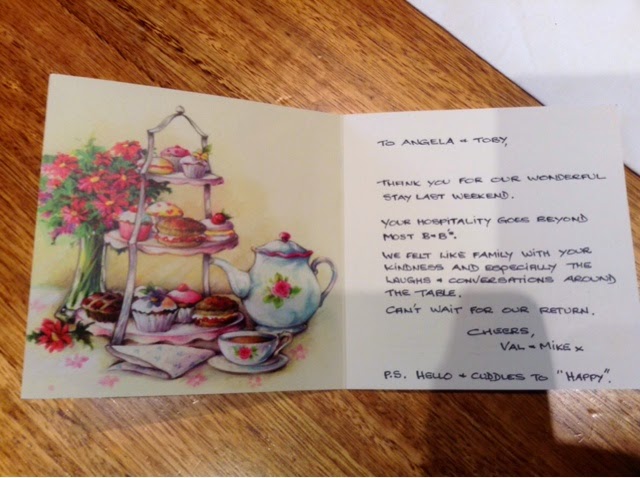 TO ANGELA & TOBY,
THANK YOU FOR OUR WONDERFUL
STAY LAST WEEKEND.
YOUR HOSPITALITY GOES BEYOND
MOST B&B's.
WE FELT LIKE FAMILY WITH YOUR
KINDNESS AND ESPECIALLY THE
LAUGHS & CONVERSATIONS AROUND
THE TABLE.
CAN'T WAIT FOR OUR RETURN.
CHEERS,
VAL & MIKE x
P.S. HELLO & CUDDLES TO "HAPPY".